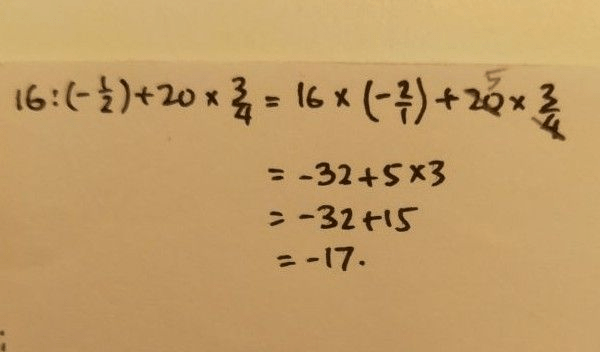 16:(-1/2)+20×3/4 = 16×(-2/1)+20 5×3/4
= -32+5×3
= -32+15
= -17.